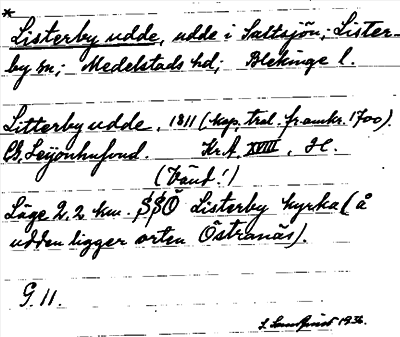 *
Listerby udde, udde i Saltsjön, Lister-
by sn; Medelstads hd; Blekinge l.
Litterby udde, 1811 (kop. trol. fr. omkr. 1700).
C. Leijonhufvud. Kr. A. XVIII, H.
(Vänd!)
Läge 2,2 km. SSO Listerby kyrka (å
udden ligger orten Östranäs).
G. 11.
1936.